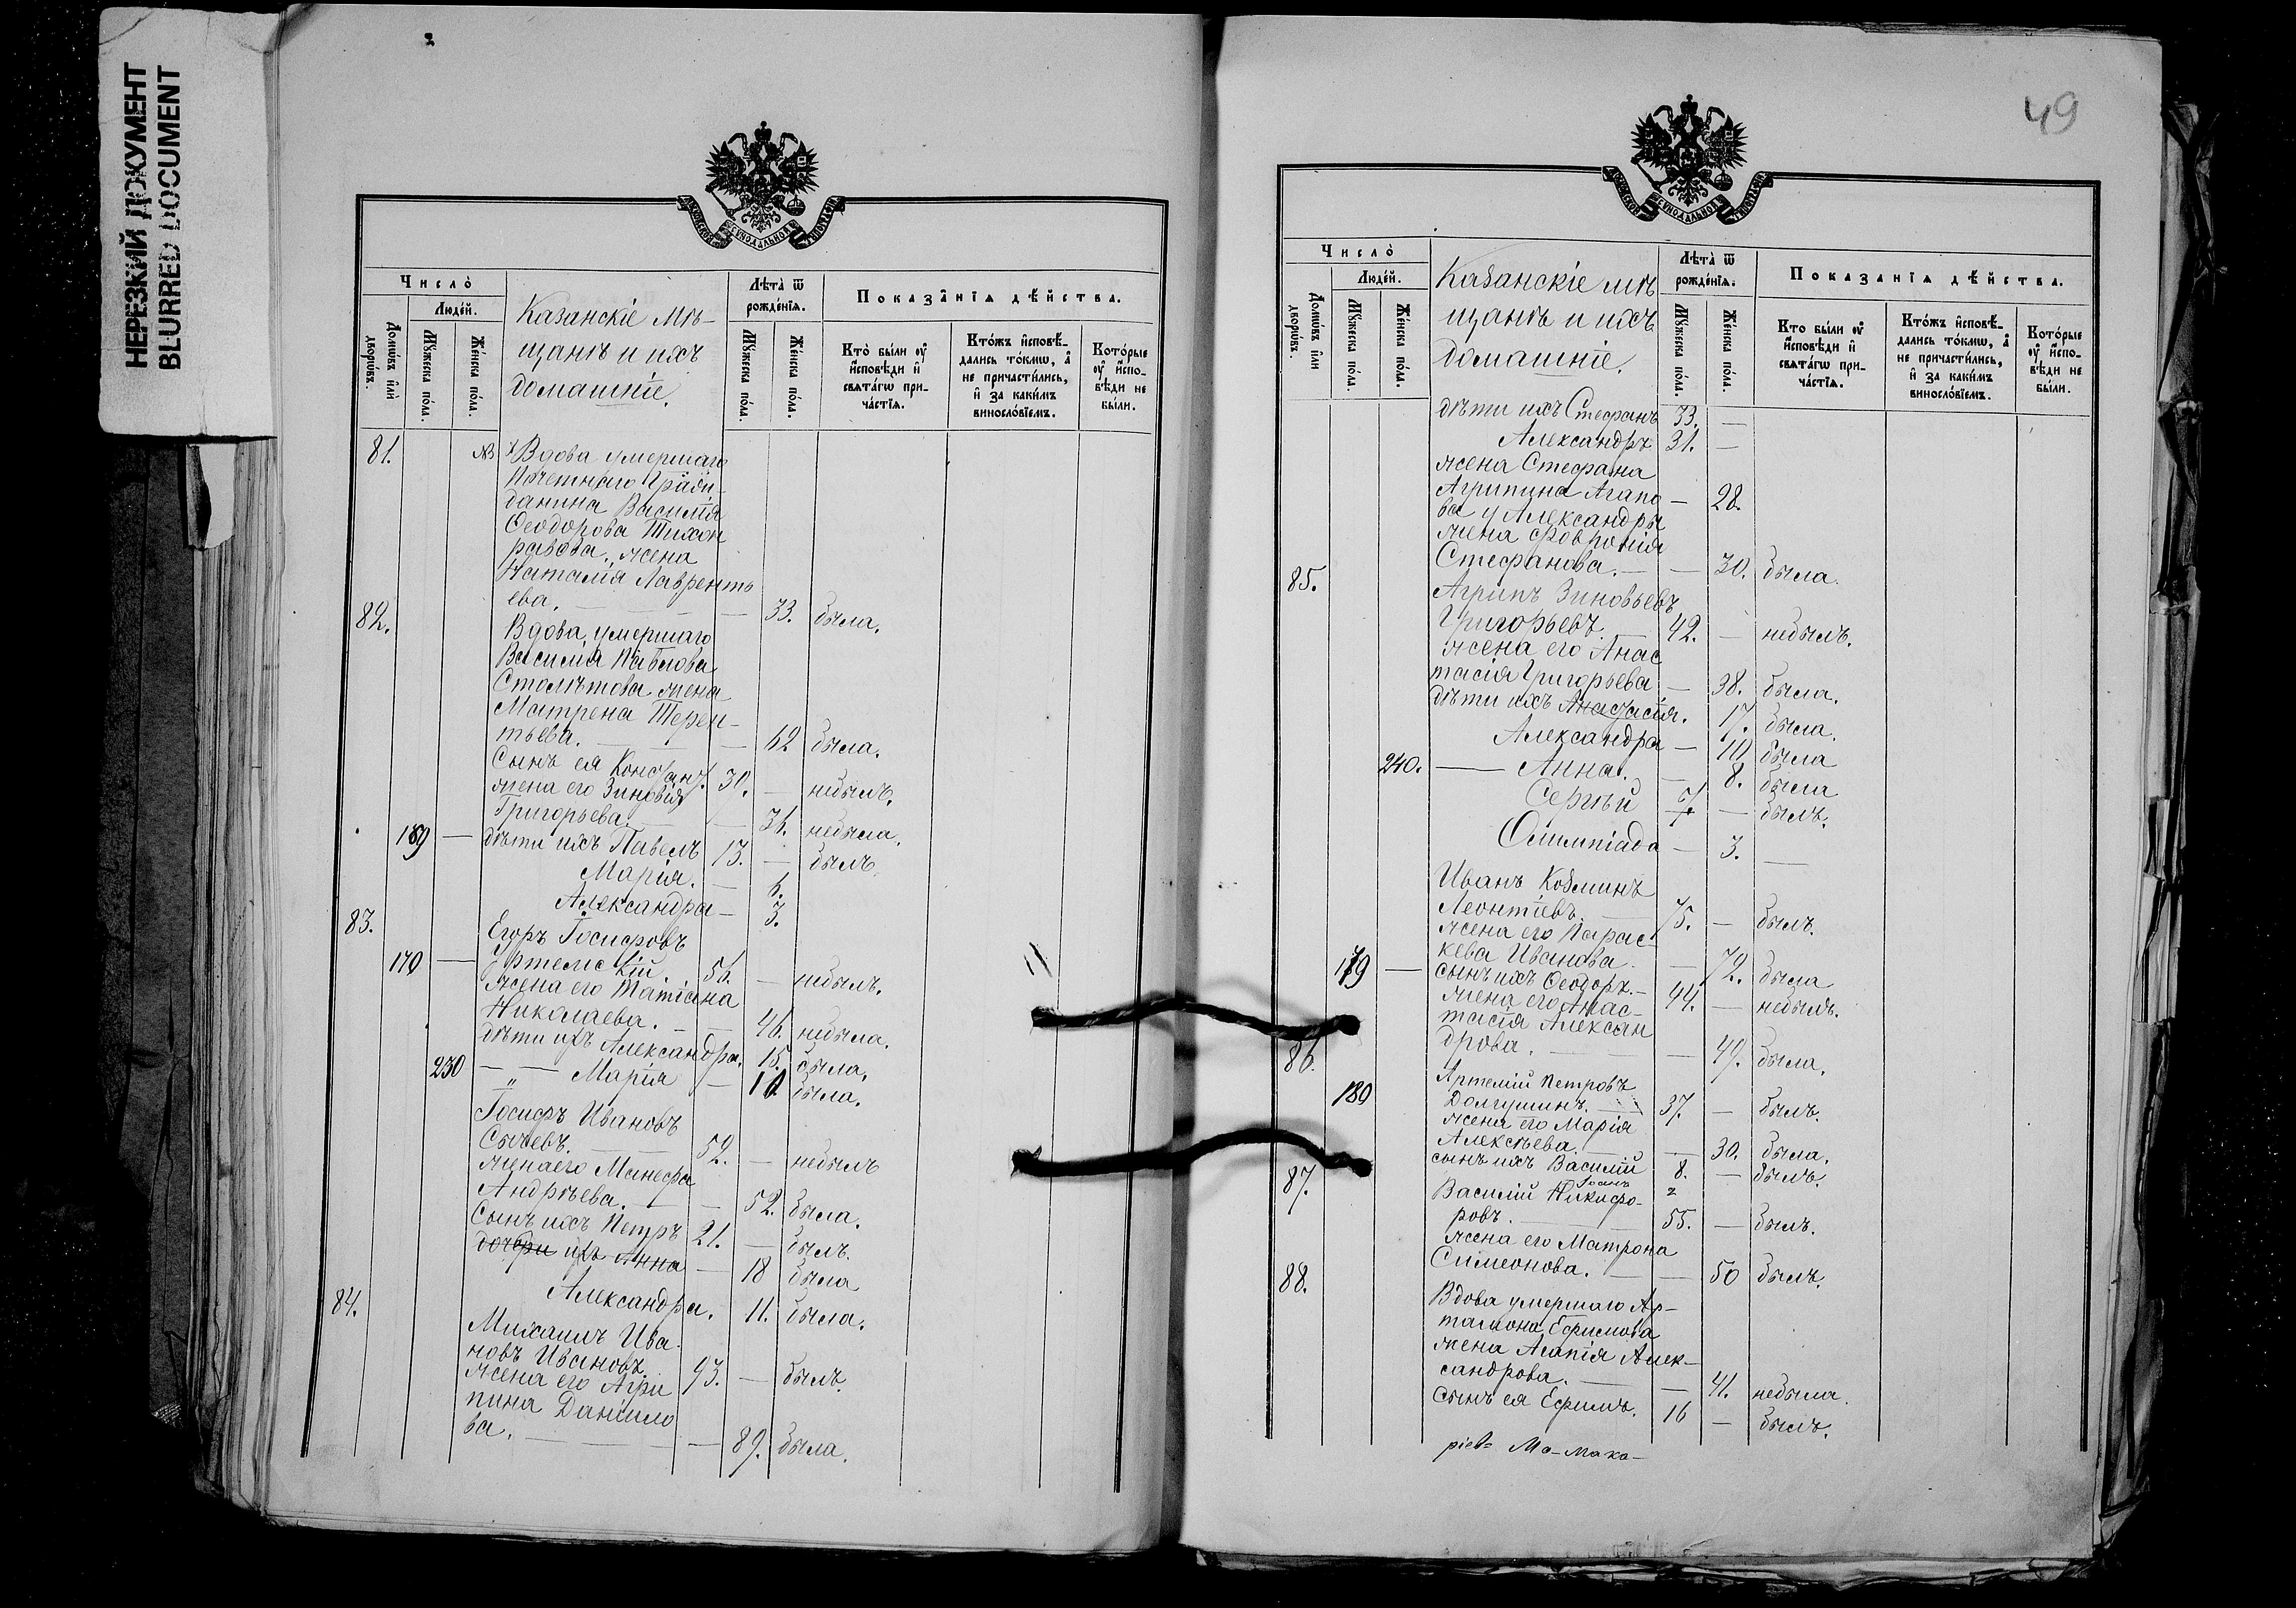 НЕРЕЗКИЙ ДОКУМЕНТ
BLURRED DOCUMENT
Число̀
Люде́й.
Домѡ́въ и҆лѝ дворѡ́въ.
Мꙋ́жеска по́ла.
Же́нска по́ла.
Казанскіе мѣ-
щанѣ и ихъ
домашніе.
Лѣта̀ ѿ рожде́нїѧ.
Мꙋ́жеска по́ла.
Же́нска по́ла.
Показа̑нїѧ дѣ́йства.
Кто̀ бы́ли ᲂу҆
и҆сповѣ́ди и҆
свѧта́гѡ при-
ча́стїѧ.
Кто́жъ и҆сповѣ́-
дались то́кмѡ, а҆
не причасти́лись,
и҆ за каки́мъ
винословїемъ.
Кото́рые
ᲂу҆ и҆спо-
вѣ́ди не
бы́ли.
81. Вдова умершаго
Почетнаго Граж-
данина Василія
Ѳеодорова Тихон
равова, жена
Наталія Лавренть
ева. — — 33. была.
82. Вдова, умершаго
Василія Павлова
Столѣтова жена
Матрена Терен-
тьева. — — 62 была.
Сынъ ея Констант. 30. — небылъ.
жена его Зиновія
Григорьева. — 36. небыла.
169 — дѣти ихъ Павелъ 13. — былъ.
Марія. — 6.
Александра — 3.
83. Егоръ Іосифовъ
170 — Уртемскій. 56. — небылъ.
жена его Татіана
Николаева. — — 46. небыла.
дѣти ихъ Александра. 15. была.
230 — — Марія — 10. была.
Іосифъ Ивановъ
Сычевъ. — 52. — небылъ
жена его Манефа
Андрѣева. — — 52. была.
Сынъ ихъ Петръ 21. — былъ.
дочери ихъ Анна — 18 была
Александра. 11. была.
84. Михаилъ Ива
новъ Ивановъ. 93. — былъ.
жена его Агри
пина Данило
ва. — — 89. была.
49
Число̀
Люде́й.
Домѡ́въ и҆лѝ дворѡ́въ.
Мꙋ́жеска по́ла.
Же́нска по́ла.
Казанскіе мѣ
щанѣ и ихъ
домашніе.
Лѣта̀ ѿ рожде́нїѧ.
Мꙋ́жеска по́ла.
Же́нска по́ла.
Показа̑нїѧ дѣ́йства.
Кто бы́ли ᲂу҆
и҆сповѣ́ди и҆
свѧта́гѡ при-
ча́стїѧ.
Кто́жъ и҆сповѣ́-
дались то́кмѡ, а҆
не причасти́лись,
и҆ за каки́мъ
винословїемъ.
Кото́рые
ᲂу҆ и҆спо-
вѣ́ди не
бы́ли.
дѣти ихъ Стефанъ 33. —
Александръ 31. —
жена Стефана
Агрипина Агапо — 28.
ва у Александры
жена Февронія
Стефанова. — — 30. была.
85. Агрипъ Зиновьевъ
Григорьевъ. 42. — небылъ.
жена его Анас
тасія Григорьева — 38. была.
дѣти ихъ Анастасія. 17. была.
Александра — 10 была
240. — Анна. — 8. была
Сергѣй 7 — былъ.
Олимпіада — 3. —
Иванъ Козминъ
Леонтіевъ. — 75. — былъ.
жена его Парас
кева Иванова. — 72. была
179 — сынъ ихъ Ѳеодоръ. — 44. — небылъ.
жена его Анас-
тасія Алексан
86. дрова. — — 49. была.
Артемій Петровъ
180 Долгушинъ. — 37. — былъ.
жена его Марія
Алексѣева. — — 30. была.
сынъ ихъ Василій 8. — былъ.
Іоанъ 2
87. Василій Никифо-
ровъ. — 55. — былъ.
жена его Матрона
Симеонова. — — 50 былъ.
88. Вдова умершаго Ар-
тамона Ефимова
жена Агапія Алек-
сандрова. — — 41. небыла.
Сынъ ея Ефимъ. 16 — былъ.